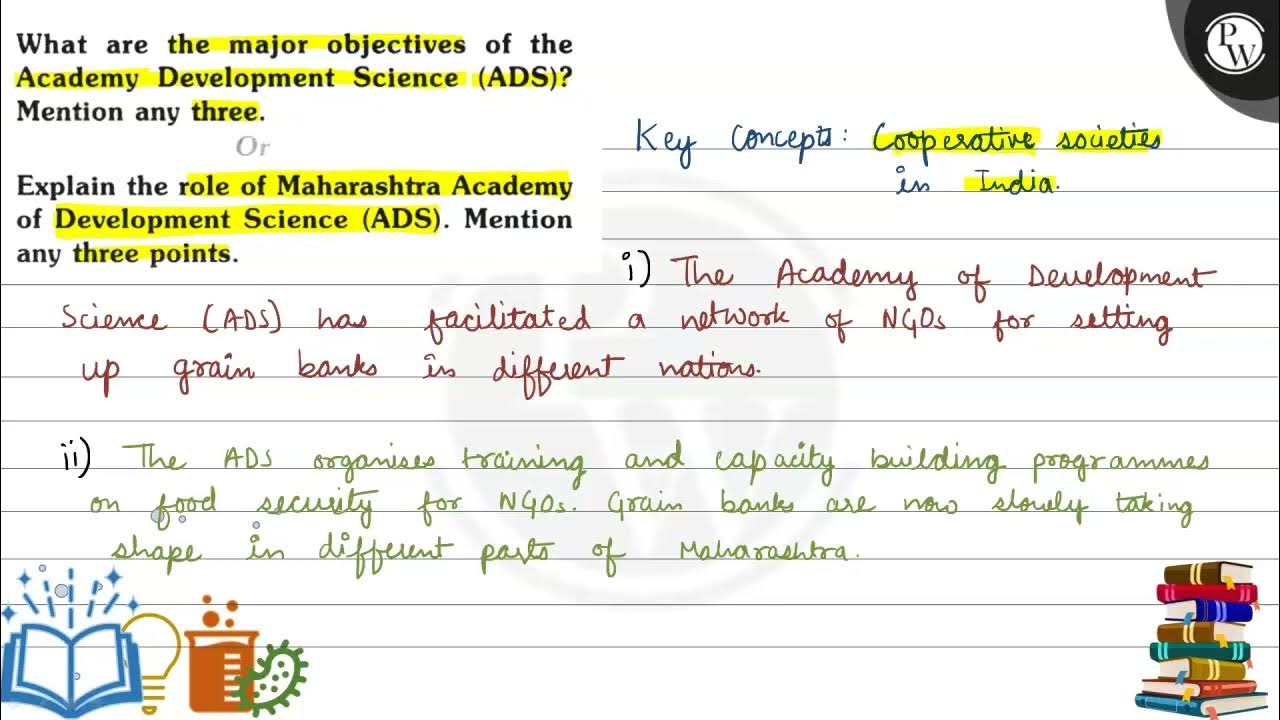 What are the major objectives of the
Academy Development Science (ADS)?
Mention any three.
Or
Explain the role of Maharashtra Academy
of Development Science (ADS). Mention
any three points.
PW
Key Concepts: Cooperative societies
in India.
i) The Academy of Development
Science (ADS) has facilitated a network of NGOs for setting
up grain banks in different nations.
ii) The ADS organises training and capacity building programmes
on food security for NGOs. Grain banks are now slowly taking
shape in different parts of Maharashtra.